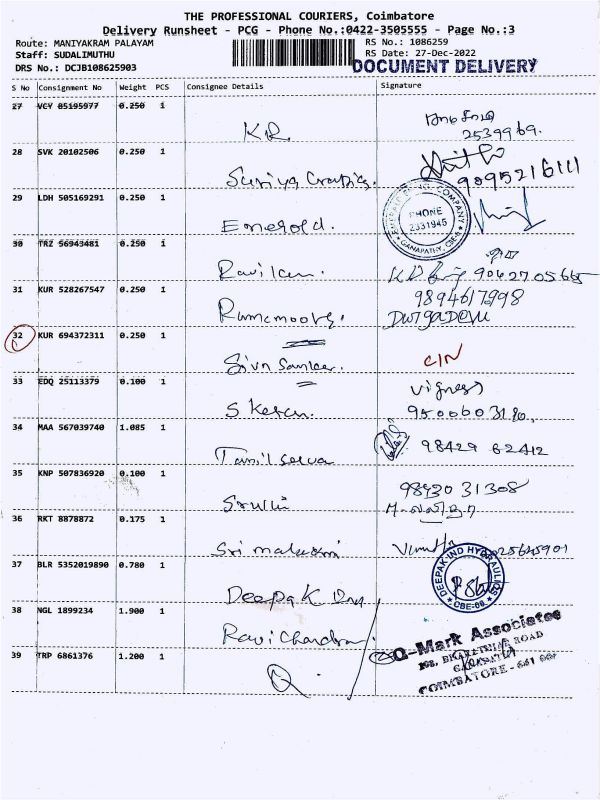 THE PROFESSIONAL COURIERS, Coimbatore
Delivery Runsheet - PCG - Phone No.:0422-3505555 - Page No.:3
Route: MANIYAKRAM PALAYAM RS No.: 1086259
Staff: SUDALIMUTHU RS Date: 27-Dec-2022
DRS No.: DCJB108625903 DOCUMENT DELIVERY
S No Consignment No Weight PCS Consignee Details Signature
27 VCY 85195977 0.250 1
KR 2539969.
28 SVK 20102506 0.250 1
Suriya 9095216111
29 LDH 505169291 0.250 1
Emerold. PHONE 2331945 GANAPATHY, CBE-6
30 TRZ 56943481 0.250 1
31 KUR 528267547 0.250 1 9894617998
Ramamoorthy. DURGADEVI
32 KUR 694372311 0.250 1
Siva Sankar. CIN
33 EDQ 25113379 0.100 1 Vignes
S Ketan.
34 MAA 567039740 1.085 1 98429 62412
Tamil selva
35 KNP 507836920 0.100 1 98430 31308
Sruthi
36 RKT 8878872 0.175 1
Sri
37 BLR 5352019890 0.780 1 DEEPAK IND HYDRAULICS CBE-06
Deepak
38 NGL 1899234 1.900 1
Ravi Chandran
39 TRP 6861376 1.200 1 Q-Mark Associates
Q. 108, BHARATHIAR ROAD
GANAPATHY
COIMBATORE - 641 006